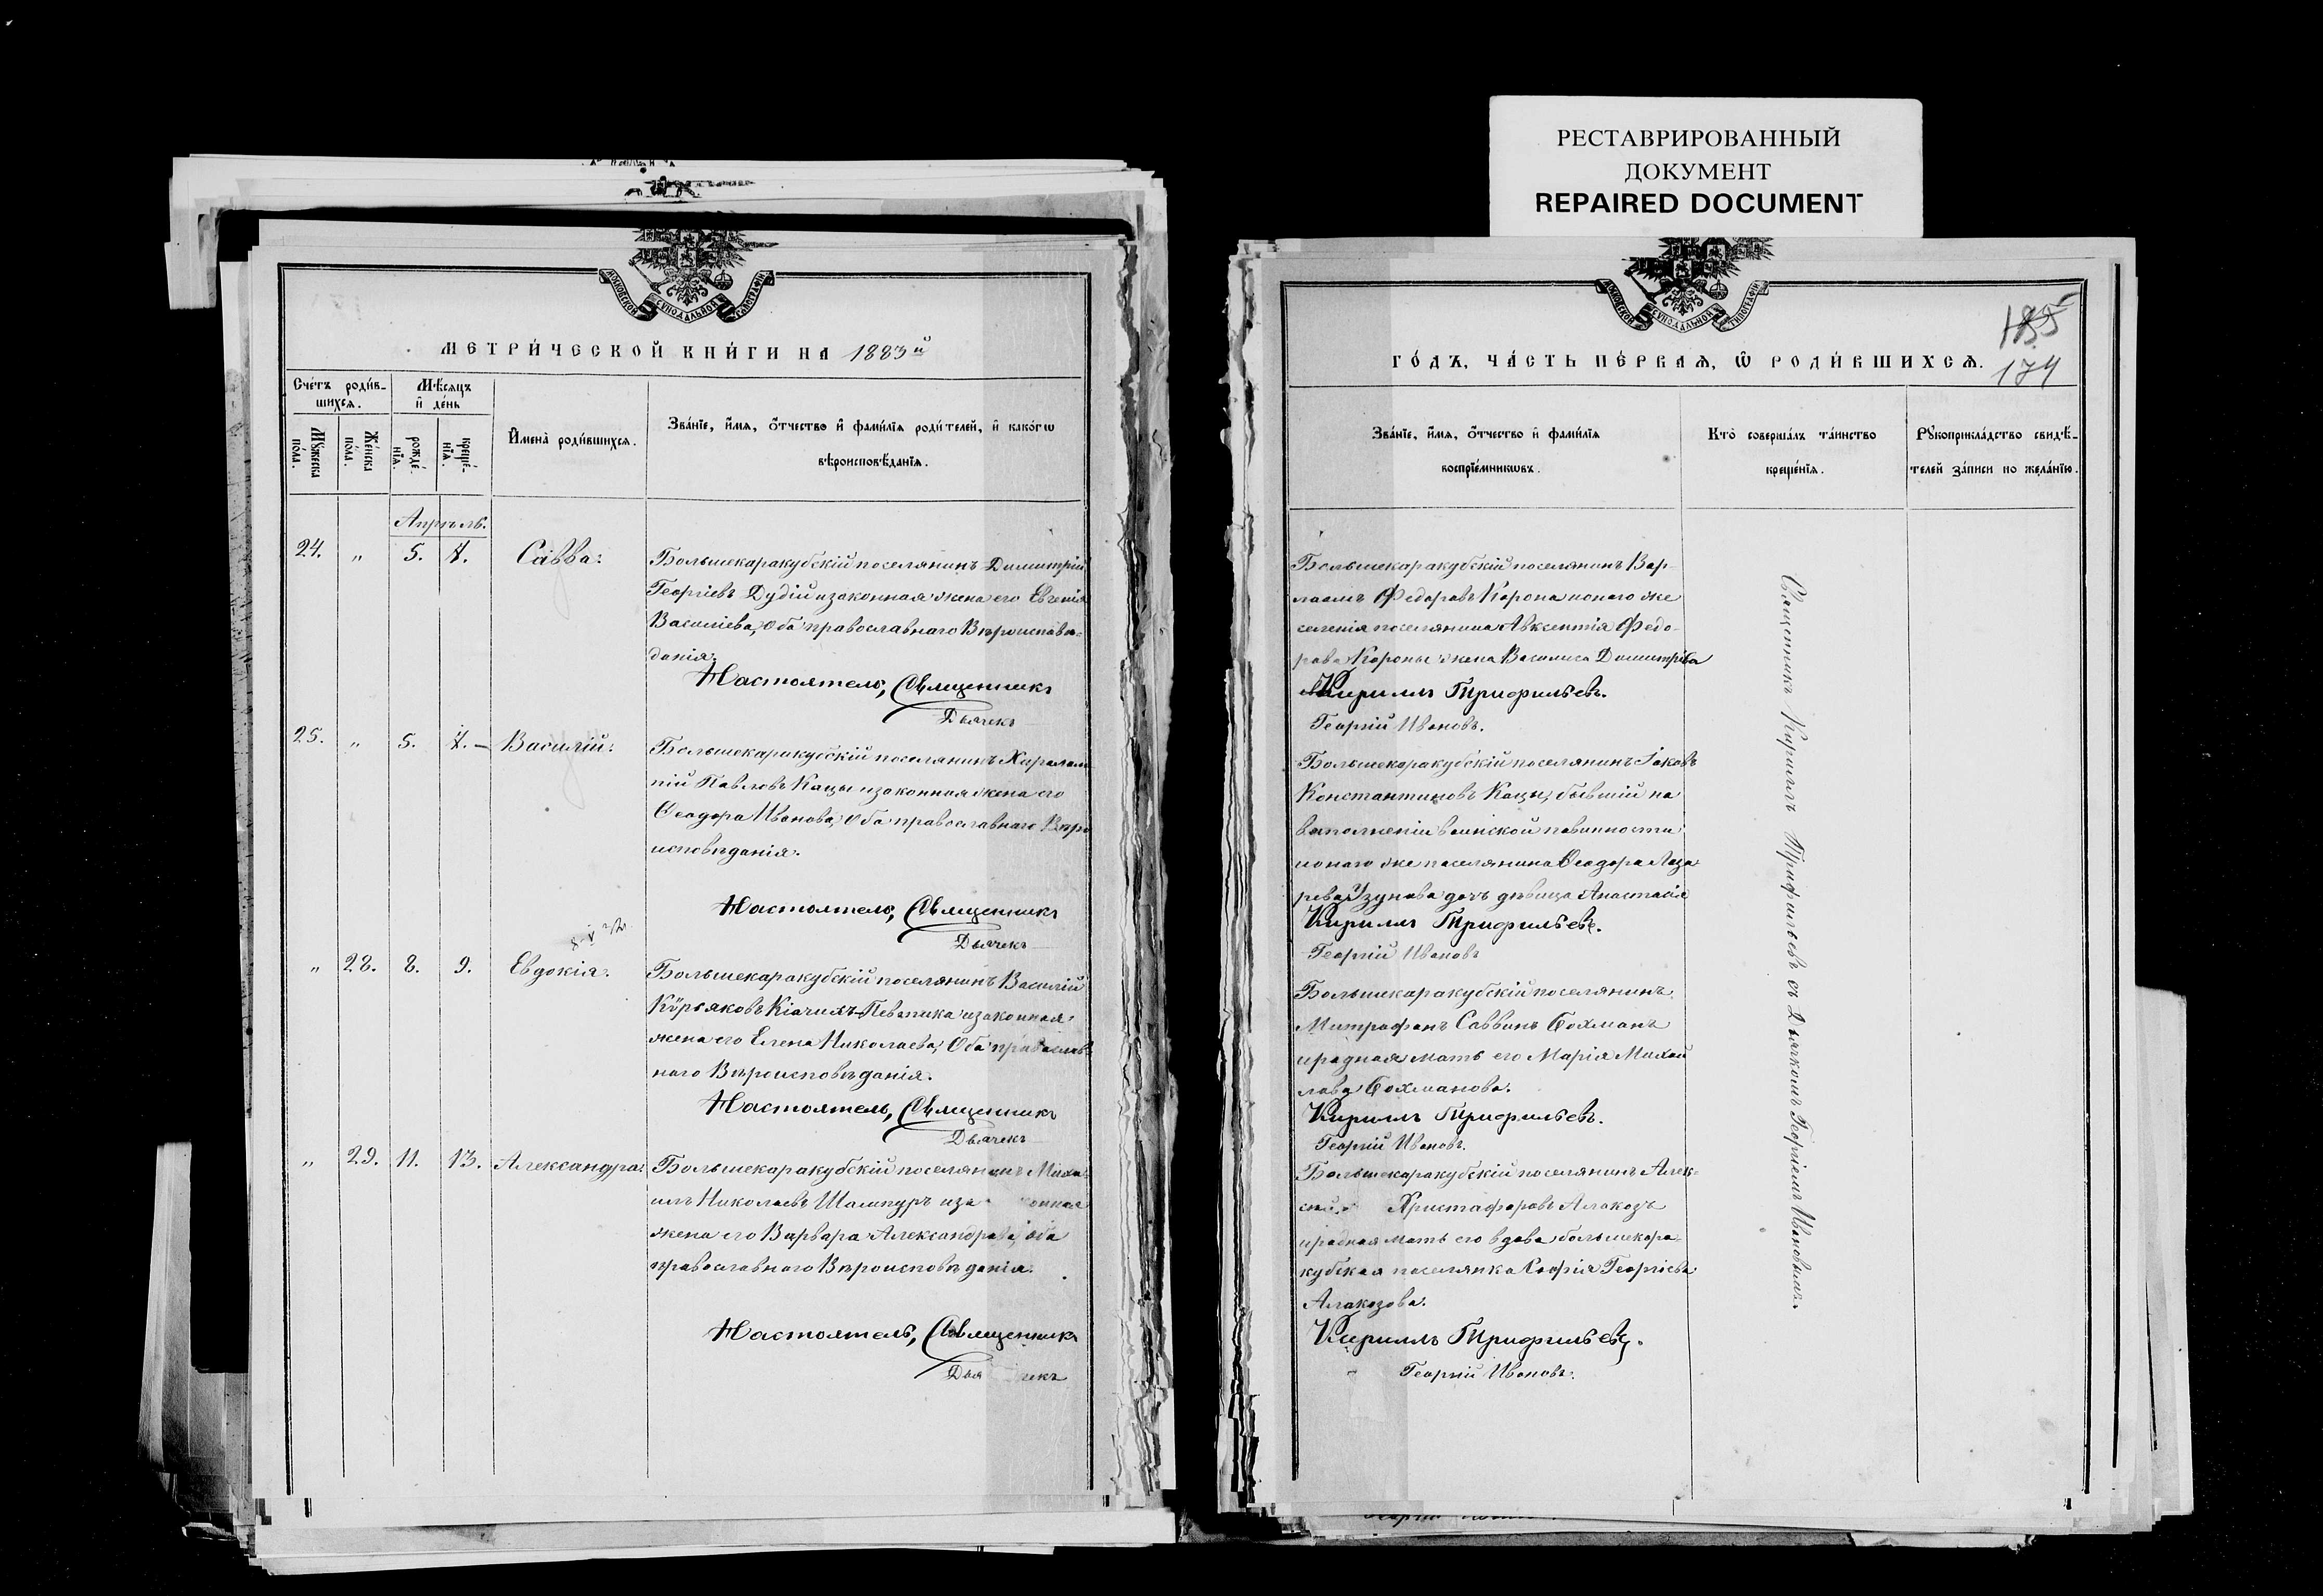 РЕСТАВРИРОВАННЫЙ
ДОКУМЕНТ
REPAIRED DOCUMENT
МОСКОВСКОЙ СѴНОДАЛЬНОЙ ТИПОГРАФІИ
МЕТРИ́ЧЕСКОЙ КНИ́ГИ НА 1883й
Сче́тъ роди́в-
шихсѧ.
Мѣ́сѧцъ
и҆ де́нь
Мꙋ́жеска
по́ла.
Же́нска
по́ла.
рожде́-
нїѧ.
креще́-
нїѧ.
И҆мена̀ роди́вшихсѧ.
Зва́нїе, и҆́мѧ, ѻ҆́тчество и҆ фами́лїѧ роди́телей, и҆ како́гѡ
вѣроисповѣ́данїѧ.
Апрѣль.
24. „ 5. 7. Савва:
Большекаракубскій поселянинъ Димитрій
Георгіевъ Дудій и законная жена его Евгенія
Василіева, Оба православнаго Вѣроисповѣ-
данія.
Настоятель, Священникъ
Дьячекъ
25. „ 5. 7. Василій:
Большекаракубскій поселянинъ Харалам
пій Павловъ Кацы и законная жена его
Ѳеодора Иванова, Оба православнаго Вѣро
исповѣданія.
Настоятель, Священникъ
Дьячекъ
„ 28. 8. 9. Евдокія:
Большекаракубскій поселянинъ Василій
Кѵрьяковъ и законная
жена его Елена Николаева, Оба православ
наго Вѣроисповѣданія.
Настоятель, Священникъ
Дьячекъ
„ 29. 11. 13. Александра:
Большекаракубскій поселянинъ Миха
илъ Николаевъ Шампуръ и за конная
жена его Варвара Александрова, оба
православнаго Вѣроисповѣданія.
Настоятель, Священникъ
Дья чекъ
МОСКОВСКОЙ СѴНОДАЛЬНОЙ ТИПОГРАФІИ
185
174
ГО́ДЪ, ЧА́СТЬ ПЕ́РВАѦ, Ѽ РОДИ́ВШИХСѦ.
Зва́нїе, и҆́мѧ, ѻ҆́тчество и҆ фами́лїѧ
воспрїе́мникѡвъ.
Кто̀ соверша́лъ та́инство
креще́нїѧ.
Рꙋкоприкла́дство свидѣ́-
телей за́писи по жела́нїю.
Большекаракубскій поселянинъ Вар-
лаамъ Федоровъ Корона и онаго же
селенія поселянина Авксентія Федо-
рова Короны жена Василиса Димитріева
Кириллъ Трифильевъ.
Георгій Ивановъ.
Большекаракубскій поселянинъ Іаковъ
Константиновъ Кацы, бывшій на
выполненіи воинской повинности
и онаго же поселянина Ѳеодора Лаза
рева Узунова дочь дѣвица Анастасія
Кириллъ Трифильевъ.
Георгій Ивановъ
Большекаракубскій поселянинъ
Митрофанъ Саввинъ Бохманъ
и родная мать его Марія Михай
лова Бохманова.
Кириллъ Трифильевъ.
Георгій Ивановъ.
Большекаракубскій поселянинъ Алек-
сѣй Христофоровъ Алакозъ
и родная мать его вдова большекара-
кубская поселянка Софія Георгіева
Алакозова.
Кириллъ Трифильевъ.
Георгій Ивановъ.
Священникъ Кириллъ Трифильевъ съ Дьячкомъ Георгіемъ Ивановымъ.